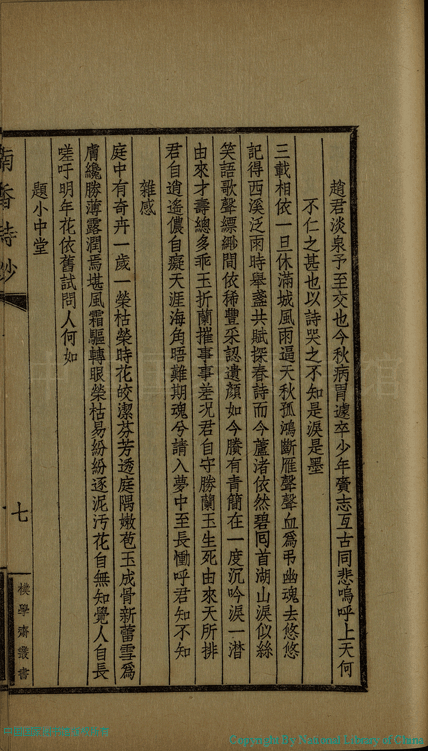 趙君淡泉予至交也今秋病胃遽卒少年賫志亙古同悲嗚呼上天何
不仁之甚也以詩哭之不知是淚是墨
三載相依一旦休滿城風雨逼天秋孤鴻斷雁聲聲血為弔幽魂去悠悠
記得西溪泛雨時舉盞共賦探春詩而今蘆渚依然碧回首湖山淚似絲
笑語歌聲縹緲間依稀豐采認遺顏如今賸有青簡在一度沉吟淚一潸
由來才壽總多乖玉折蘭摧事事差况君自守勝蘭玉生死由來天所排
君自逍遙儂自癡天涯海角晤難期魂兮請入夢中至長慟呼君知不知
雜感
庭中有奇卉一歲一榮枯榮時花皎潔芬芳透庭隅嫩苞玉成骨新蕾雪為
膚纔勝薄露潤焉堪風霜驅轉眼榮枯易紛紛逐泥汚花自無知覺人自長
嗟吁明年花依舊試問人何如
題小中堂
南香詩鈔
七
樸學齋叢書
Copyright by National Library of China